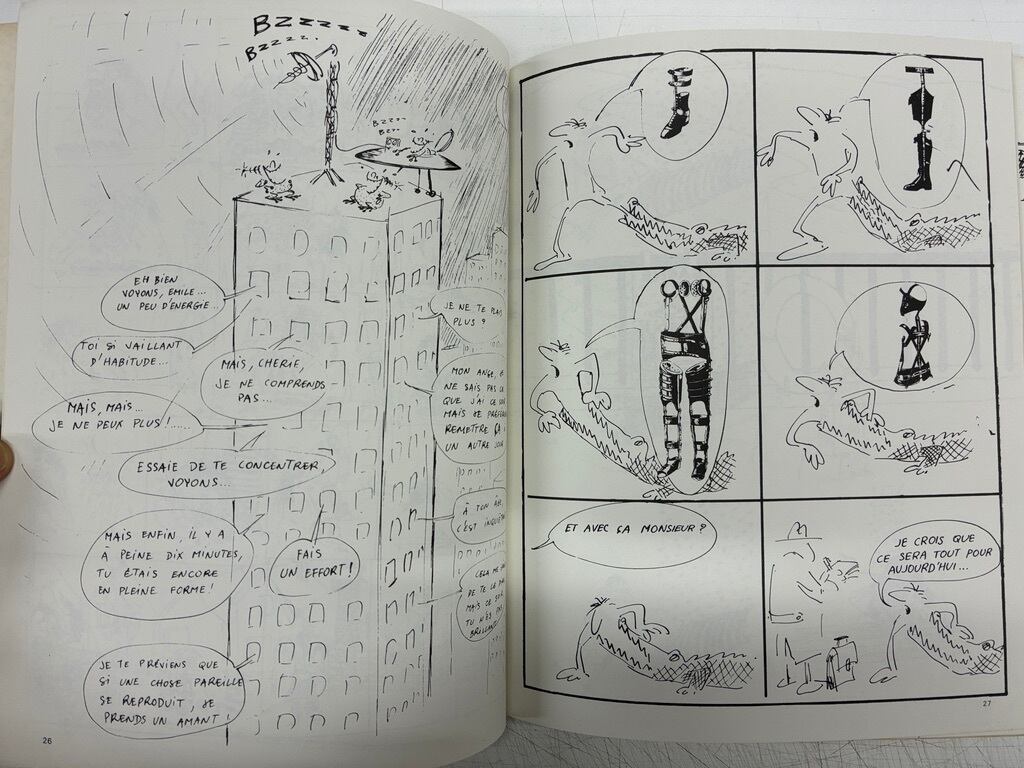 BZZZZZZ
BZZZZ..
BZZZ
BZZ..
EH BIEN
VOYONS, EMILE...
UN PEU D'ENERGIE...
TOI SI VAILLANT
D'HABITUDE...
MAIS, CHERIE,
JE NE COMPRENDS
PAS...
MAIS, MAIS...
JE NE PEUX PLUS !.....
ESSAIE DE TE CONCENTRER,
VOYONS...
MAIS ENFIN, IL Y A
À PEINE DIX MINUTES,
TU ÉTAIS ENCORE
EN PLEINE FORME !
FAIS
UN EFFORT !
JE TE PRÉVIENS QUE
SI UNE CHOSE PAREILLE
SE REPRODUIT, JE
PRENDS UN AMANT !
JE NE TE PLAIS
PLUS ?
MON ANGE,
NE SAIS PAS
QUE J'AI CE
MAIS JE
REMETTRE ÇA
UN AUTRE
À TON
C'EST
CELA ME
DE TE LE
MAIS CE
TU N'ES
26
ET AVEC ÇA MONSIEUR ?
JE CROIS QUE
CE SERA TOUT POUR
AUJOURD'HUI...
27